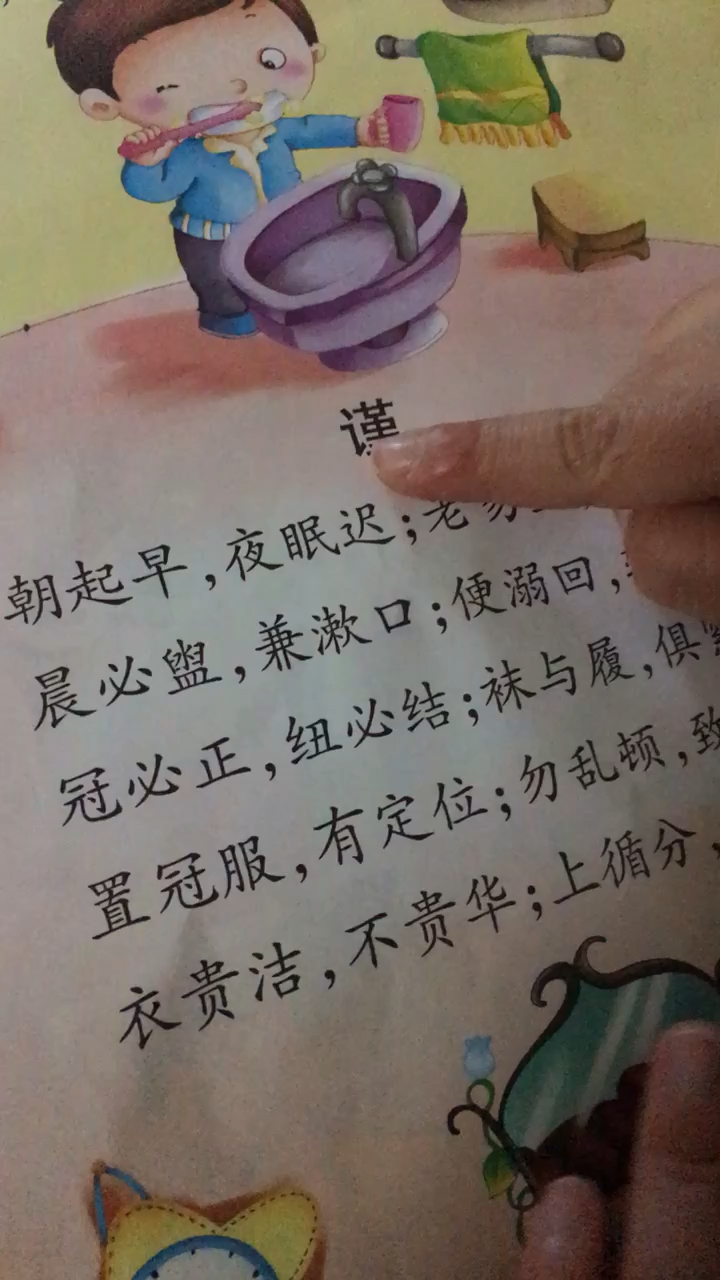 谨
朝起早,夜眠迟;老易
晨必盥,兼漱口;便溺回,
冠必正,纽必结;袜与履,俱
置冠服,有定位;勿乱顿,致
衣贵洁,不贵华;上循分,